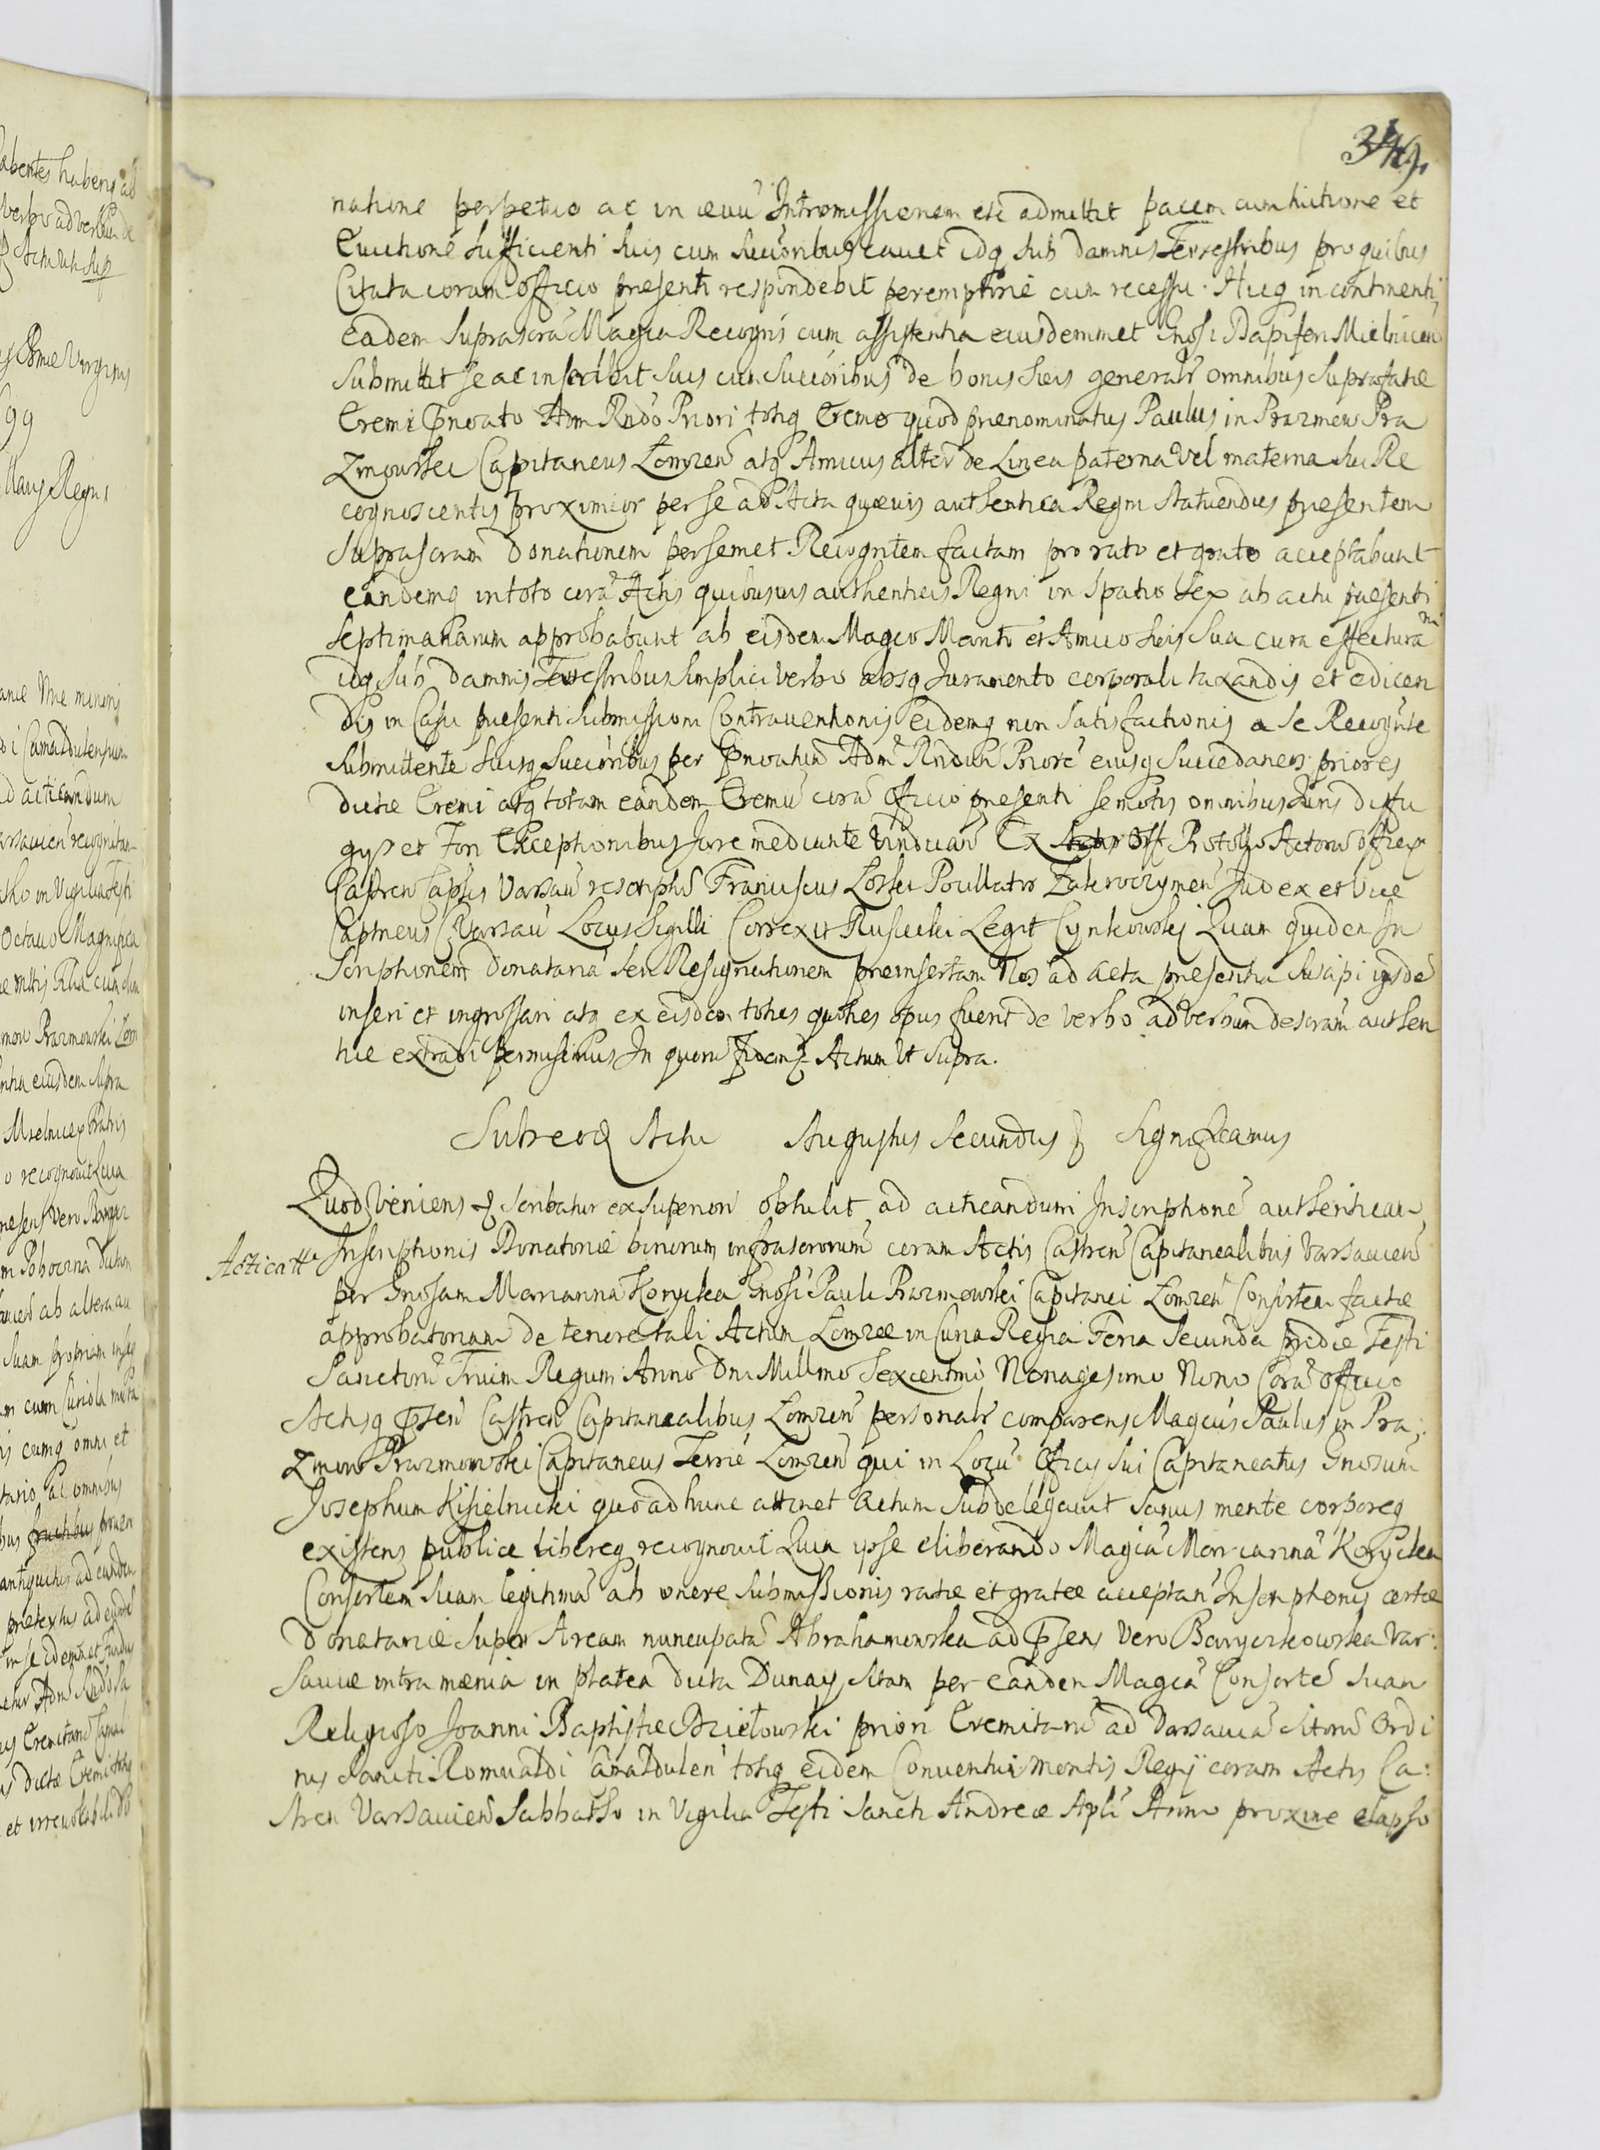 349.
natione perpetuo ac in ævu Intromissionem ete admittit pacem cum tuitione et
Euictione sufficienti suis cum succoribus cauet idq sub damnis Terrestribus pro quibus
Citata coram officio presenti respondebit peremptorie cum recessu. Hucq in continenti
eadem suprascra Magca Recogns cum assistentia eiusdemmet Gnosi Dapiferi Mielnicen
submittit se ac inscribit suis cum succoribus de bonis suis generalr omnibus suprafatæ
Eremi Adm Rndo Priori totiq Eremo quod prænominatus Paulus in Prazmow Pra
zmowski Capitaneus Lomzen atq Amicus alter de Linea paterna vel materna suæ Re
cognoscentis proximior per se ad Acta quævis authentica Regni statuendus presentem
suprascram donationem persemet Recogntem factam pro rato et grato acceptabunt
eandemq in toto cora Actis quibusuis authenticis Regni in spatio sex ab actu presenti
septimanarum approbabunt ab eisdem Magco Marito et Amico suis sua cura effectura
idq sub damnis Terrestribus simplici verbo absq Juramento corporali taxandis et edicen
dis in Casu presenti submissioni Contrauentionis eidemq non satisfactionis a se Recognte
submittente suisq succoribus per Adm Rndum Priore eiusq succedaneos priores
dictæ Eremi atq totam eandem Eremu cora officio presenti semotis omnibus Juris diffu
gys et Fori Exceptionibus Jure mediante vindican Ex Off Protollo Actoru officy
Castren Caplis Varsau rescriptu Franciscus Loski Pocillator Zakroczymen Judex et Vice
Captneus C Varsau Locus Sigilli Correxit Rusiecki Legit Cynkowski Quam quidem In
scriptionem donatoria seu Resignationem preinsertam Nos ad acta presentia suscipi ysde
inseri et ingrossari atq ex eisdem toties quoties opus fuerit de verbo ad verbum descram authen
tice extradi permisimus In quoru fidem Actum Ut supra.
Sub eod Actu Augustus Secundus Significamus
Quod Veniens scribatur ex superiori obtulit ad acticandum Inscriptione authenticam
Acticatt
Inscriptionis Donatoriæ binorum infrascrorum coram Actis Castren Capitanealibus Varsauien
per Gnosam Marianna Korycka Gnosi Pauli Prazmowski Capitanei Lomzen Consortem factæ
approbatoriam de tenore tali Actum Lomzæ in Curia Regia Feria secunda pridie Festi
Sanctoru Trium Regum Anno Dni Millmo Sexcentmo Nonagesimo Nono Cora officio
Actisq Castren Capitanealibus Lomzen personalr comparens Magcus Paulus in Pra
zmow Prazmowski Capitaneus Terræ Lomzen qui in Locu Officy sui Capitaneatus Gnosum
Josephum Kisielnicki quo ad hunc attinet actum subdelegauit sanus mente corporeq
existens publice libereq recognouit Quia ipse eliberando Magca Mariannа Korycka
Consortem suam legitima ab onere submissionis ratæ et gratæ acceptan Inscriptionis certæ
donatoriæ super Aream nuncupata Abrahamowska ad psens vero Baryczkowska Var
sauiæ intra mænia in platea dicta Dunay sitam per eandem Magca Consorte suam
Religioso Joanni Baptistæ Dziełowski priori Eremitaru ad Varsauia sitoru Ordi
nis Sancti Romualdi Camaldulen totiq eidem Conuentui Montis Regy coram Actis Ca
stren Varsauien Sabbatho in Vigilia Festi Sancti Andreæ Apli Anno proxime elapso